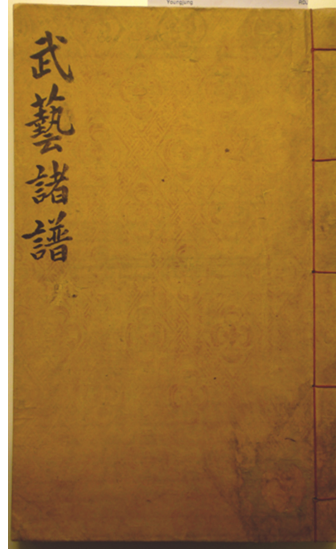 武藝諸譜